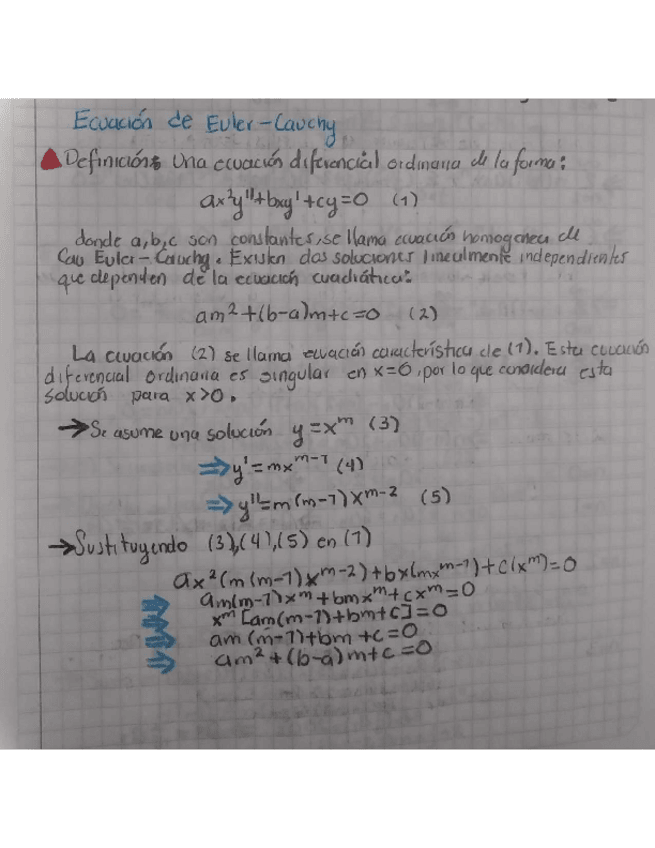 Ecuación de Euler-Cauchy
Definición: Una ecuación diferencial ordinaria de la forma:
ax²y''+bxy'+cy=0 (1)
donde a,b,c son constantes, se llama ecuación homogenea de
Cau Euler-Cauchy. Existen dos soluciones linealmente independientes
que dependen de la ecuación cuadrática:
am²+(b-a)m+c=0 (2)
La ecuación (2) se llama ecuación característica de (1). Esta ecuación
diferencial ordinaria es singular en x=0, por lo que considera esta
solución para x>0.
→Se asume una solución y=x^m (3)
⇒y'=mx^(m-1) (4)
⇒y''=m(m-1)x^(m-2) (5)
→Sustituyendo (3),(4),(5) en (1)
ax²(m(m-1)x^(m-2))+bx(mx^(m-1))+c(x^m)=0
⇒ am(m-1)x^m+bmx^m+cx^m=0
⇒ x^m[am(m-1)+bm+c]=0
⇒ am(m-1)+bm+c=0
⇒ am²+(b-a)m+c=0